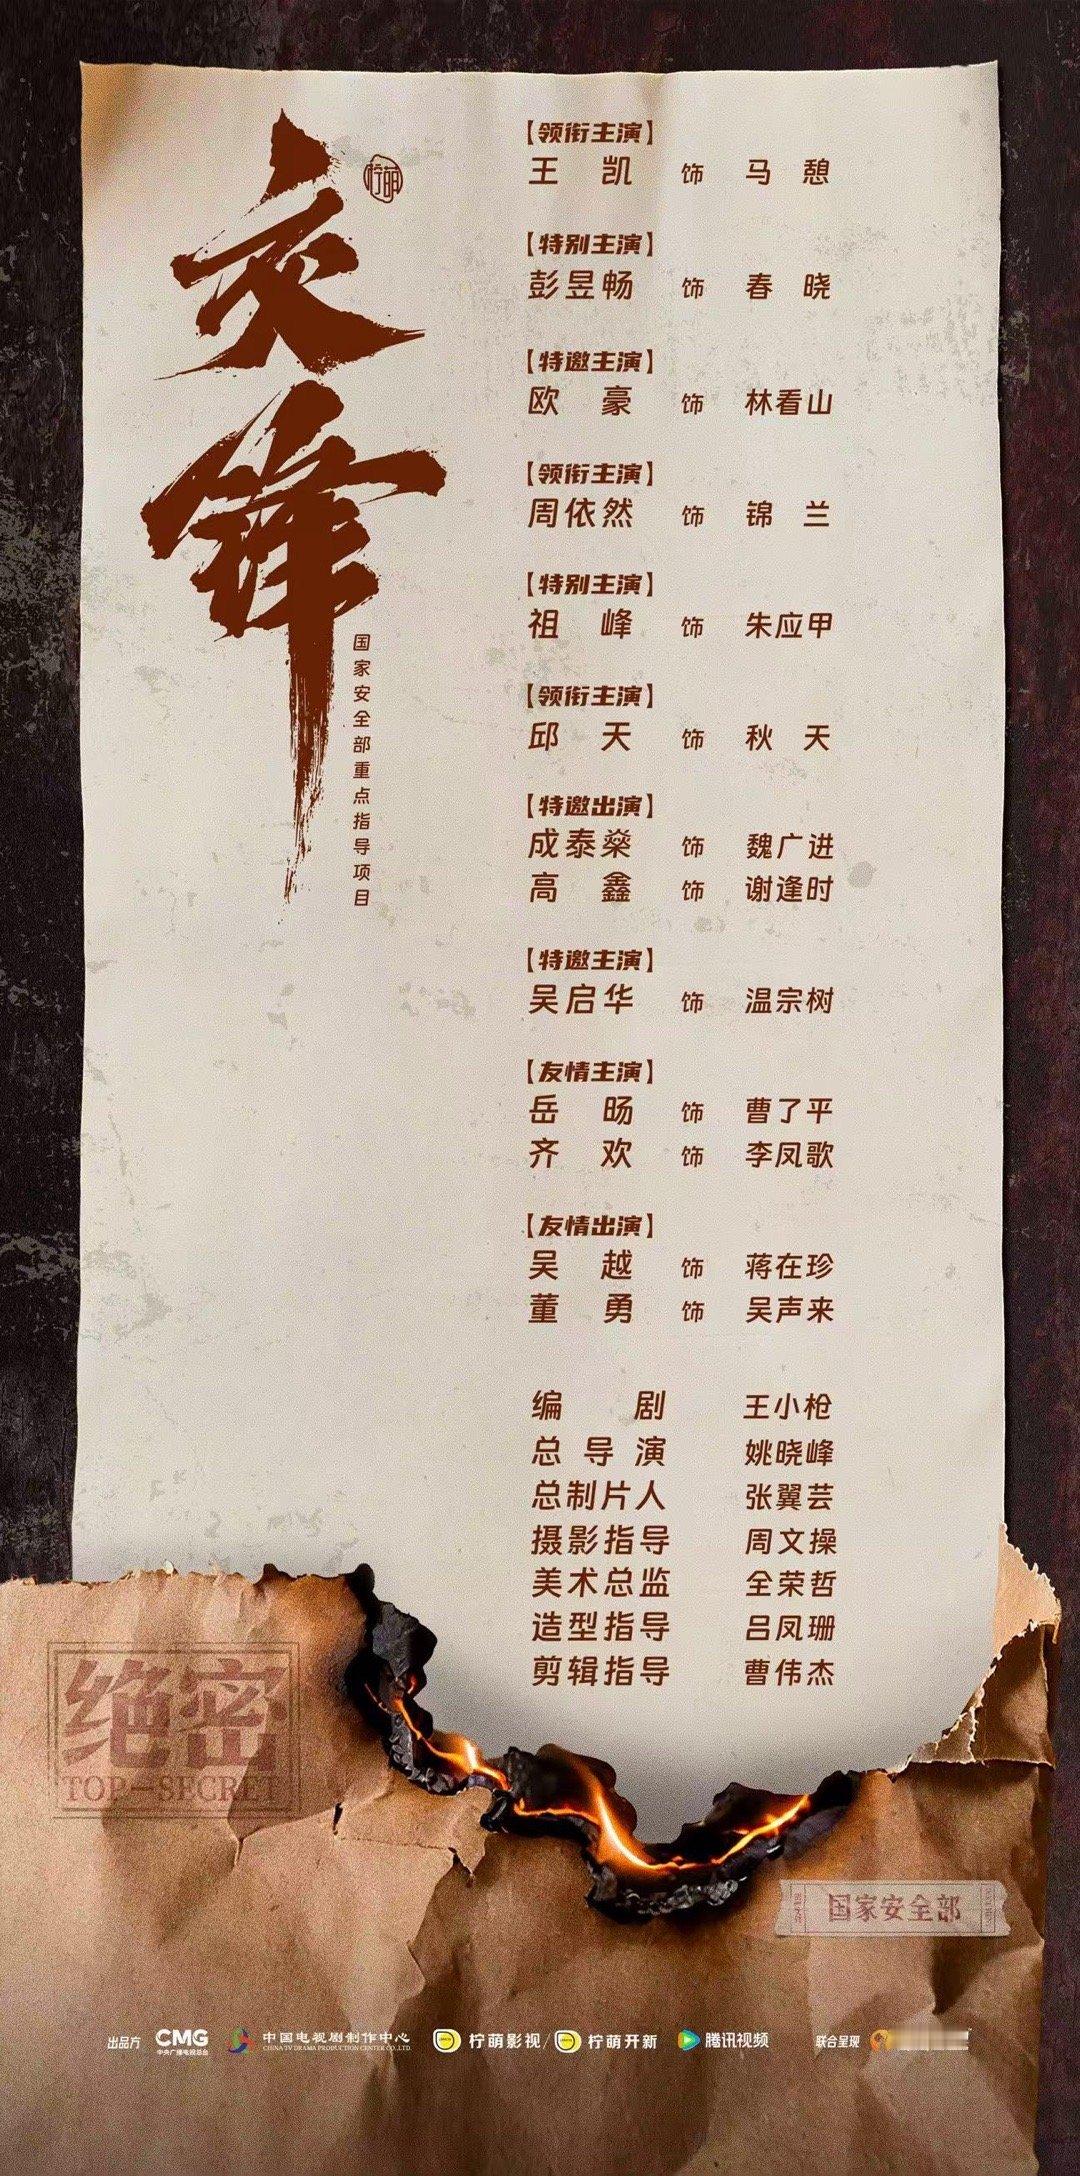 交锋
柠萌
国家安全部重点指导项目
【领衔主演】
王凯 饰 马憩
【特别主演】
彭昱畅 饰 春晓
【特邀主演】
欧豪 饰 林看山
【领衔主演】
周依然 饰 锦兰
【特别主演】
祖峰 饰 朱应甲
【领衔主演】
邱天 饰 秋天
【特邀出演】
成泰燊 饰 魏广进
高鑫 饰 谢逢时
【特邀主演】
吴启华 饰 温宗树
【友情主演】
岳旸 饰 曹了平
齐欢 饰 李凤歌
【友情出演】
吴越 饰 蒋在珍
董勇 饰 吴声来
编剧 王小枪
总导演 姚晓峰
总制片人 张翼芸
摄影指导 周文操
美术总监 全荣哲
造型指导 吕凤珊
剪辑指导 曹伟杰
绝密
TOP-SECRET
国家安全部
出品方 CMG 中央广播电视总台 中国电视剧制作中心 CHINA TV DRAMA PRODUCTION CENTER CO.,LTD. 柠萌影视/柠萌开新 腾讯视频 联合呈现